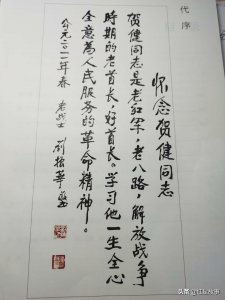 代序
怀念贺健同志
贺健同志是老红军，老八路，解放战争
时期的老首长，好首长。学习他一生全心
全意为人民服务的革命精神。
公元二〇一一年春
老战士 刘松华